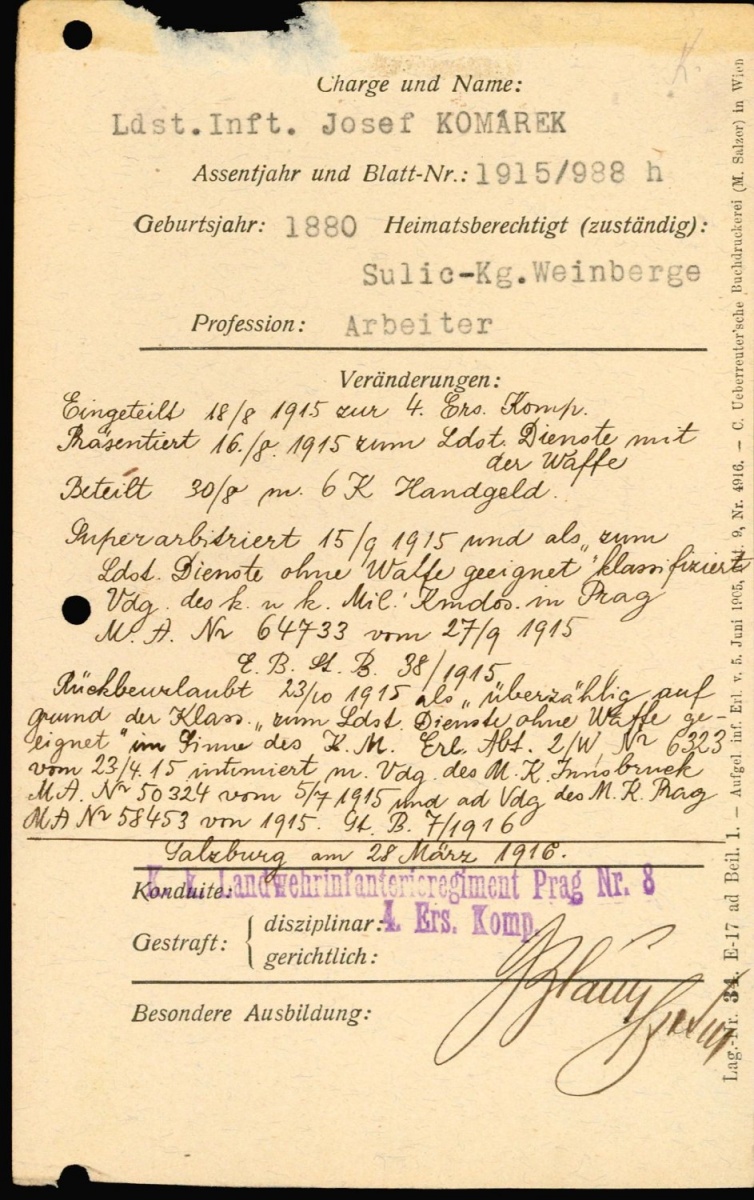 K.
Charge und Name:
Ldst.Inft. Josef KOMÁREK
Assentjahr und Blatt-Nr.: 1915/988 h
Geburtsjahr: 1880 Heimatsberechtigt (zuständig):
Sulic-Kg.Weinberge
Profession: Arbeiter
Veränderungen:
Eingeteilt 18/8 1915 zur 4. Ers. Komp.
Präsentiert 16./8. 1915 zum Ldst. Dienste mit
der Waffe
Beteilt 30/8 m. 6 K Handgeld.
Superarbitriert 15/9 1915 und als „zum
Ldst. Dienste ohne Waffe geeignet" klassifiziert
Vdg. des k. u k. Mil. Kmdos. in Prag
M. A. Nr 64733 vom 27/9 1915
E. B. St. B. 38/1915.
Rückbeurlaubt 23/10 1915 als „überzählig auf
grund der Klass. „zum Ldst. Dienste ohne Waffe ge-
eignet" im Sinne des K. M. Erl. Abt. 2/W Nr 6323
vom 23/4.15 intimiert m. Vdg. des M. K. Innsbruck
M.A. Nr 50324 vom 5/7 1915 und ad Vdg des M. K. Prag
M A Nr 58453 von 1915. St. B. 7/1916
Salzburg am 28 März 1916.
Konduite:
K. k. Landwehrinfanterieregiment Prag Nr. 8
4. Ers. Komp.
Gestraft: { disziplinar:
gerichtlich:
Besondere Ausbildung:
Lag.-Nr. 34. E-17 ad Beil. 1. — Aufgel. inf. Erl. v. 5. Juni 1905, Abt. 9, Nr. 4916. — C. Ueberreuter'sche Buchdruckerei (M. Salzer) in Wien